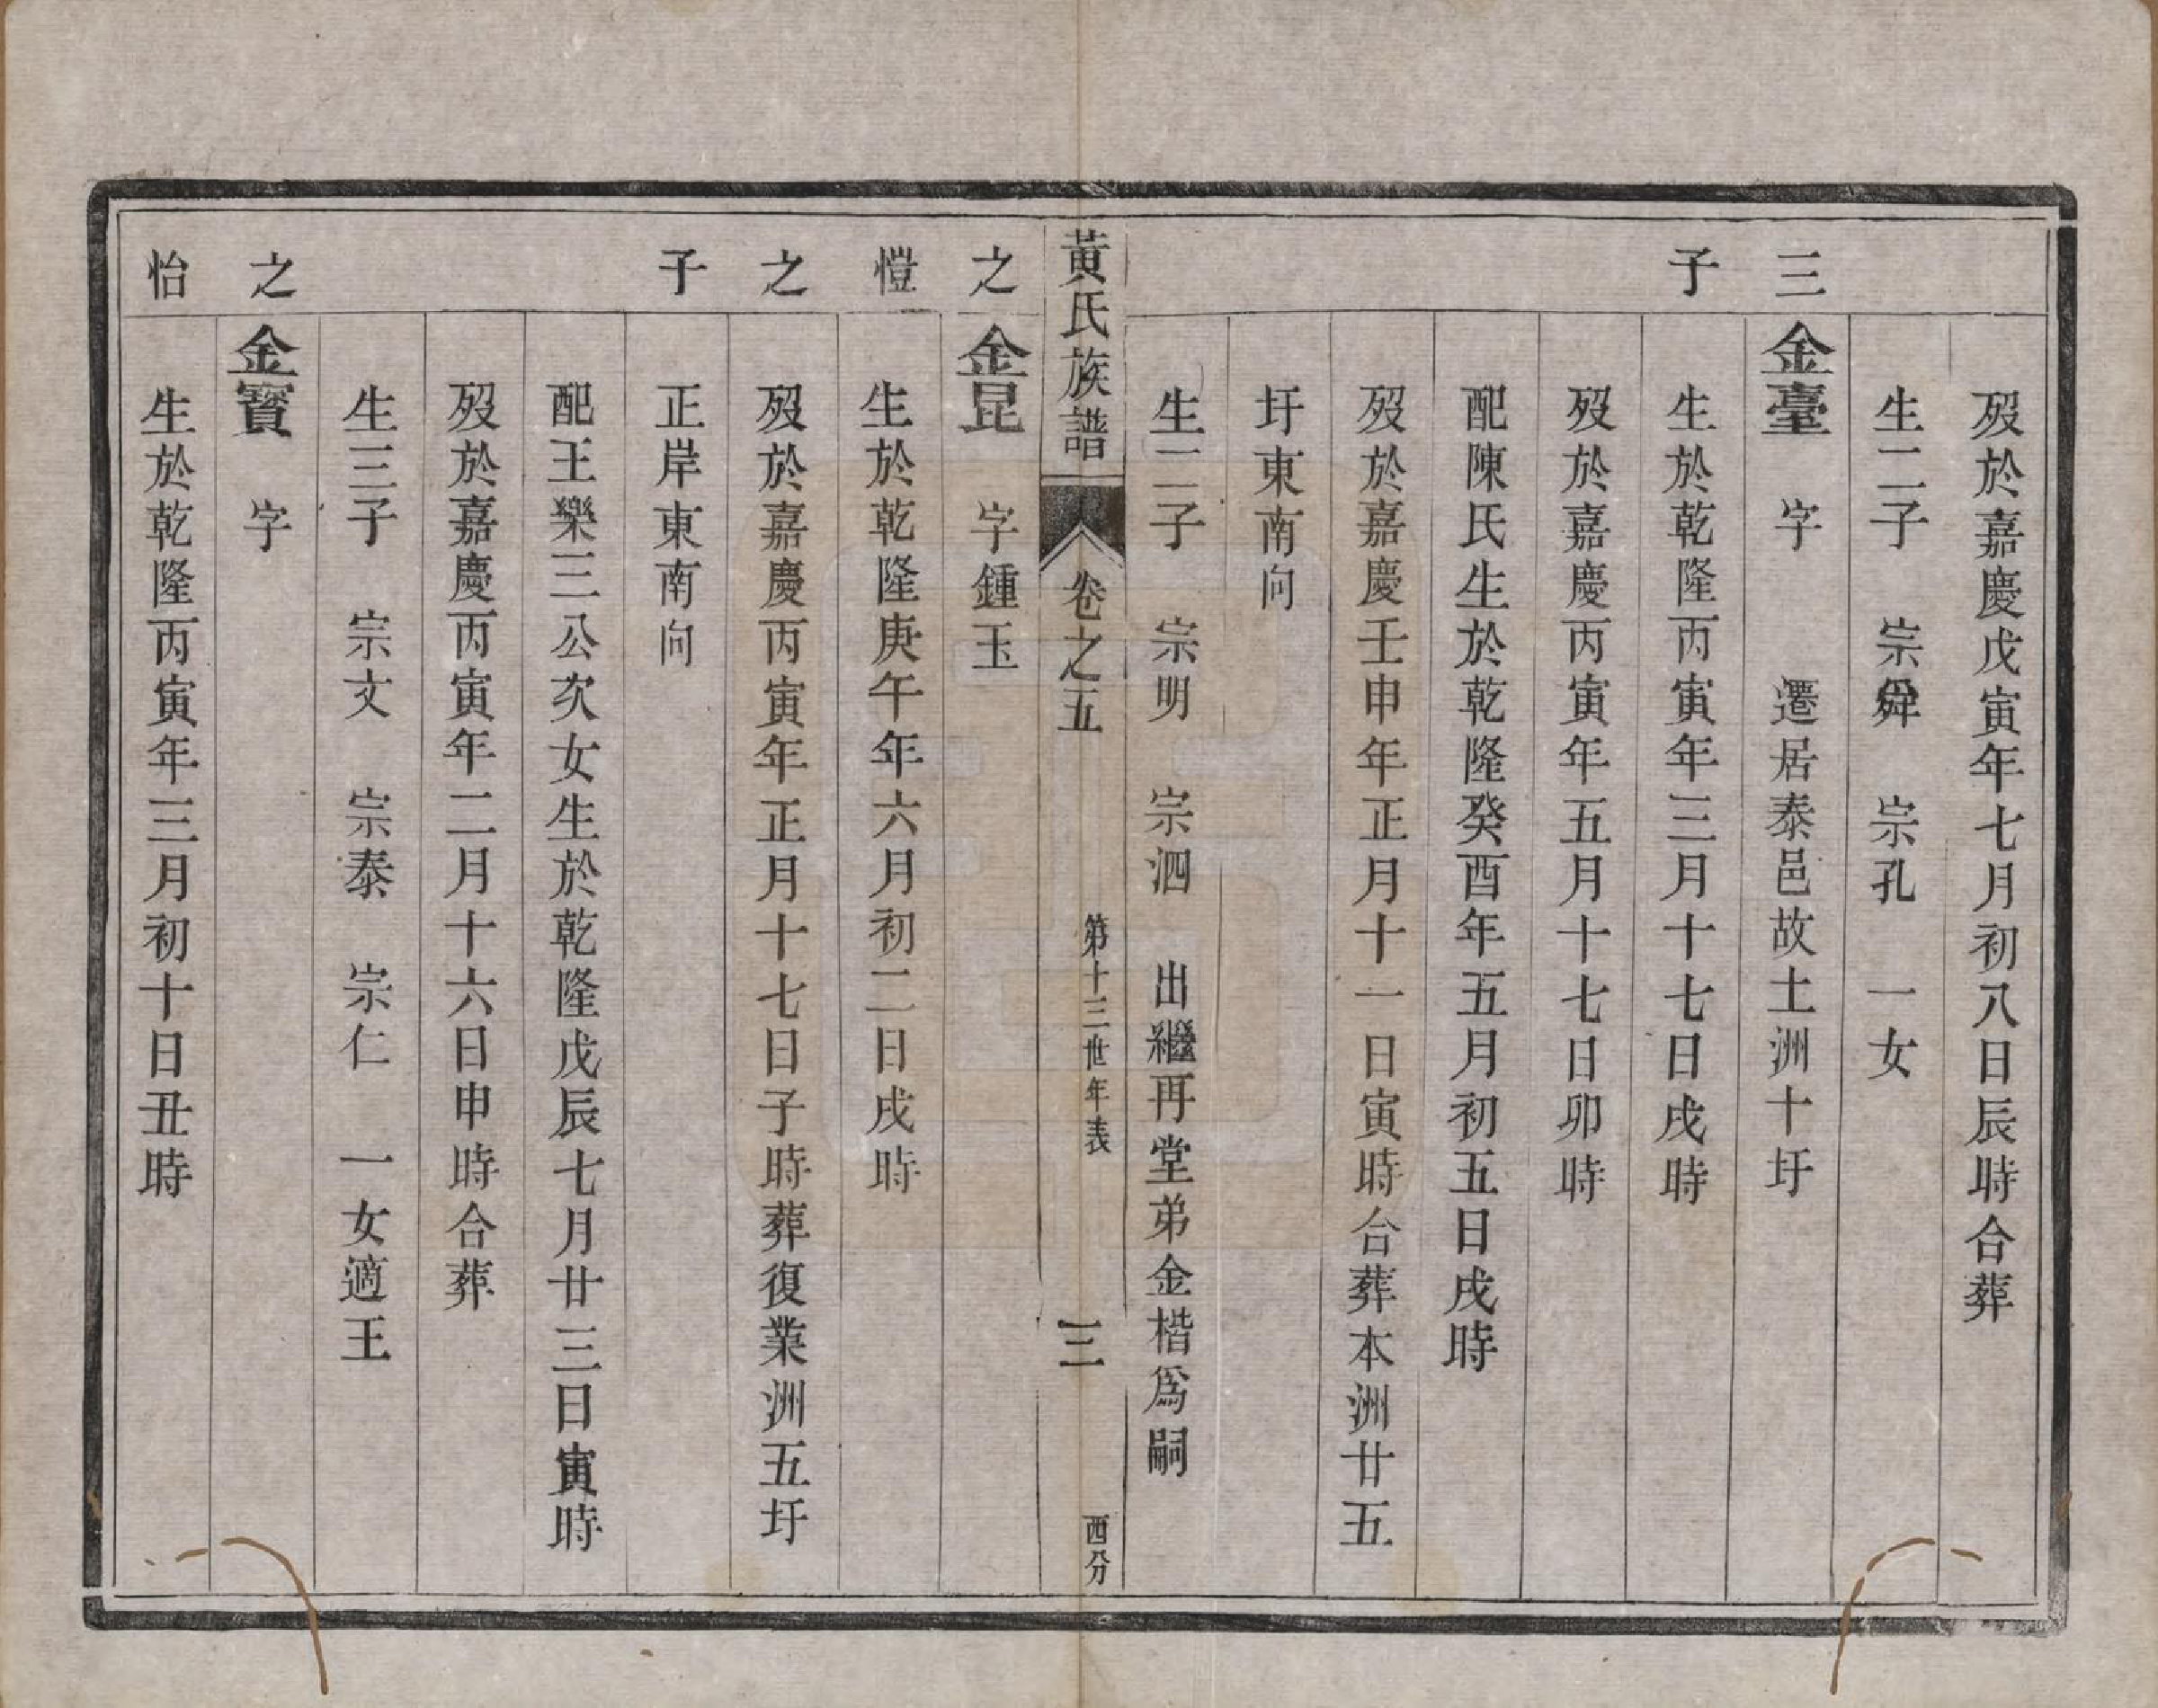 歿於嘉慶戊寅年七月初八日辰時合葬
生二子　宗舜　宗孔　一女
三　金臺　字　　遷居泰邑故土洲十圩
子　生於乾隆丙寅年三月十七日戌時
歿於嘉慶丙寅年五月十七日卯時
配陳氏生於乾隆癸酉年五月初五日戌時
歿於嘉慶壬申年正月十一日寅時合葬本洲廿五
圩東南向
生二子　宗明　宗泗　出繼再堂弟金楷爲嗣
黃氏族譜　卷之五　第十三世年表　三　西分
之　金昆　字鍾玉
愷　生於乾隆庚午年六月初二日戌時
之　歿於嘉慶丙寅年正月十七日子時葬復業洲五圩
子　正岸東南向
配王樂三公次女生於乾隆戊辰七月廿三日寅時
歿於嘉慶丙寅年二月十六日申時合葬
生三子　宗文　宗泰　宗仁　一女適王
之　金寶　字
怡　生於乾隆丙寅年三月初十日丑時